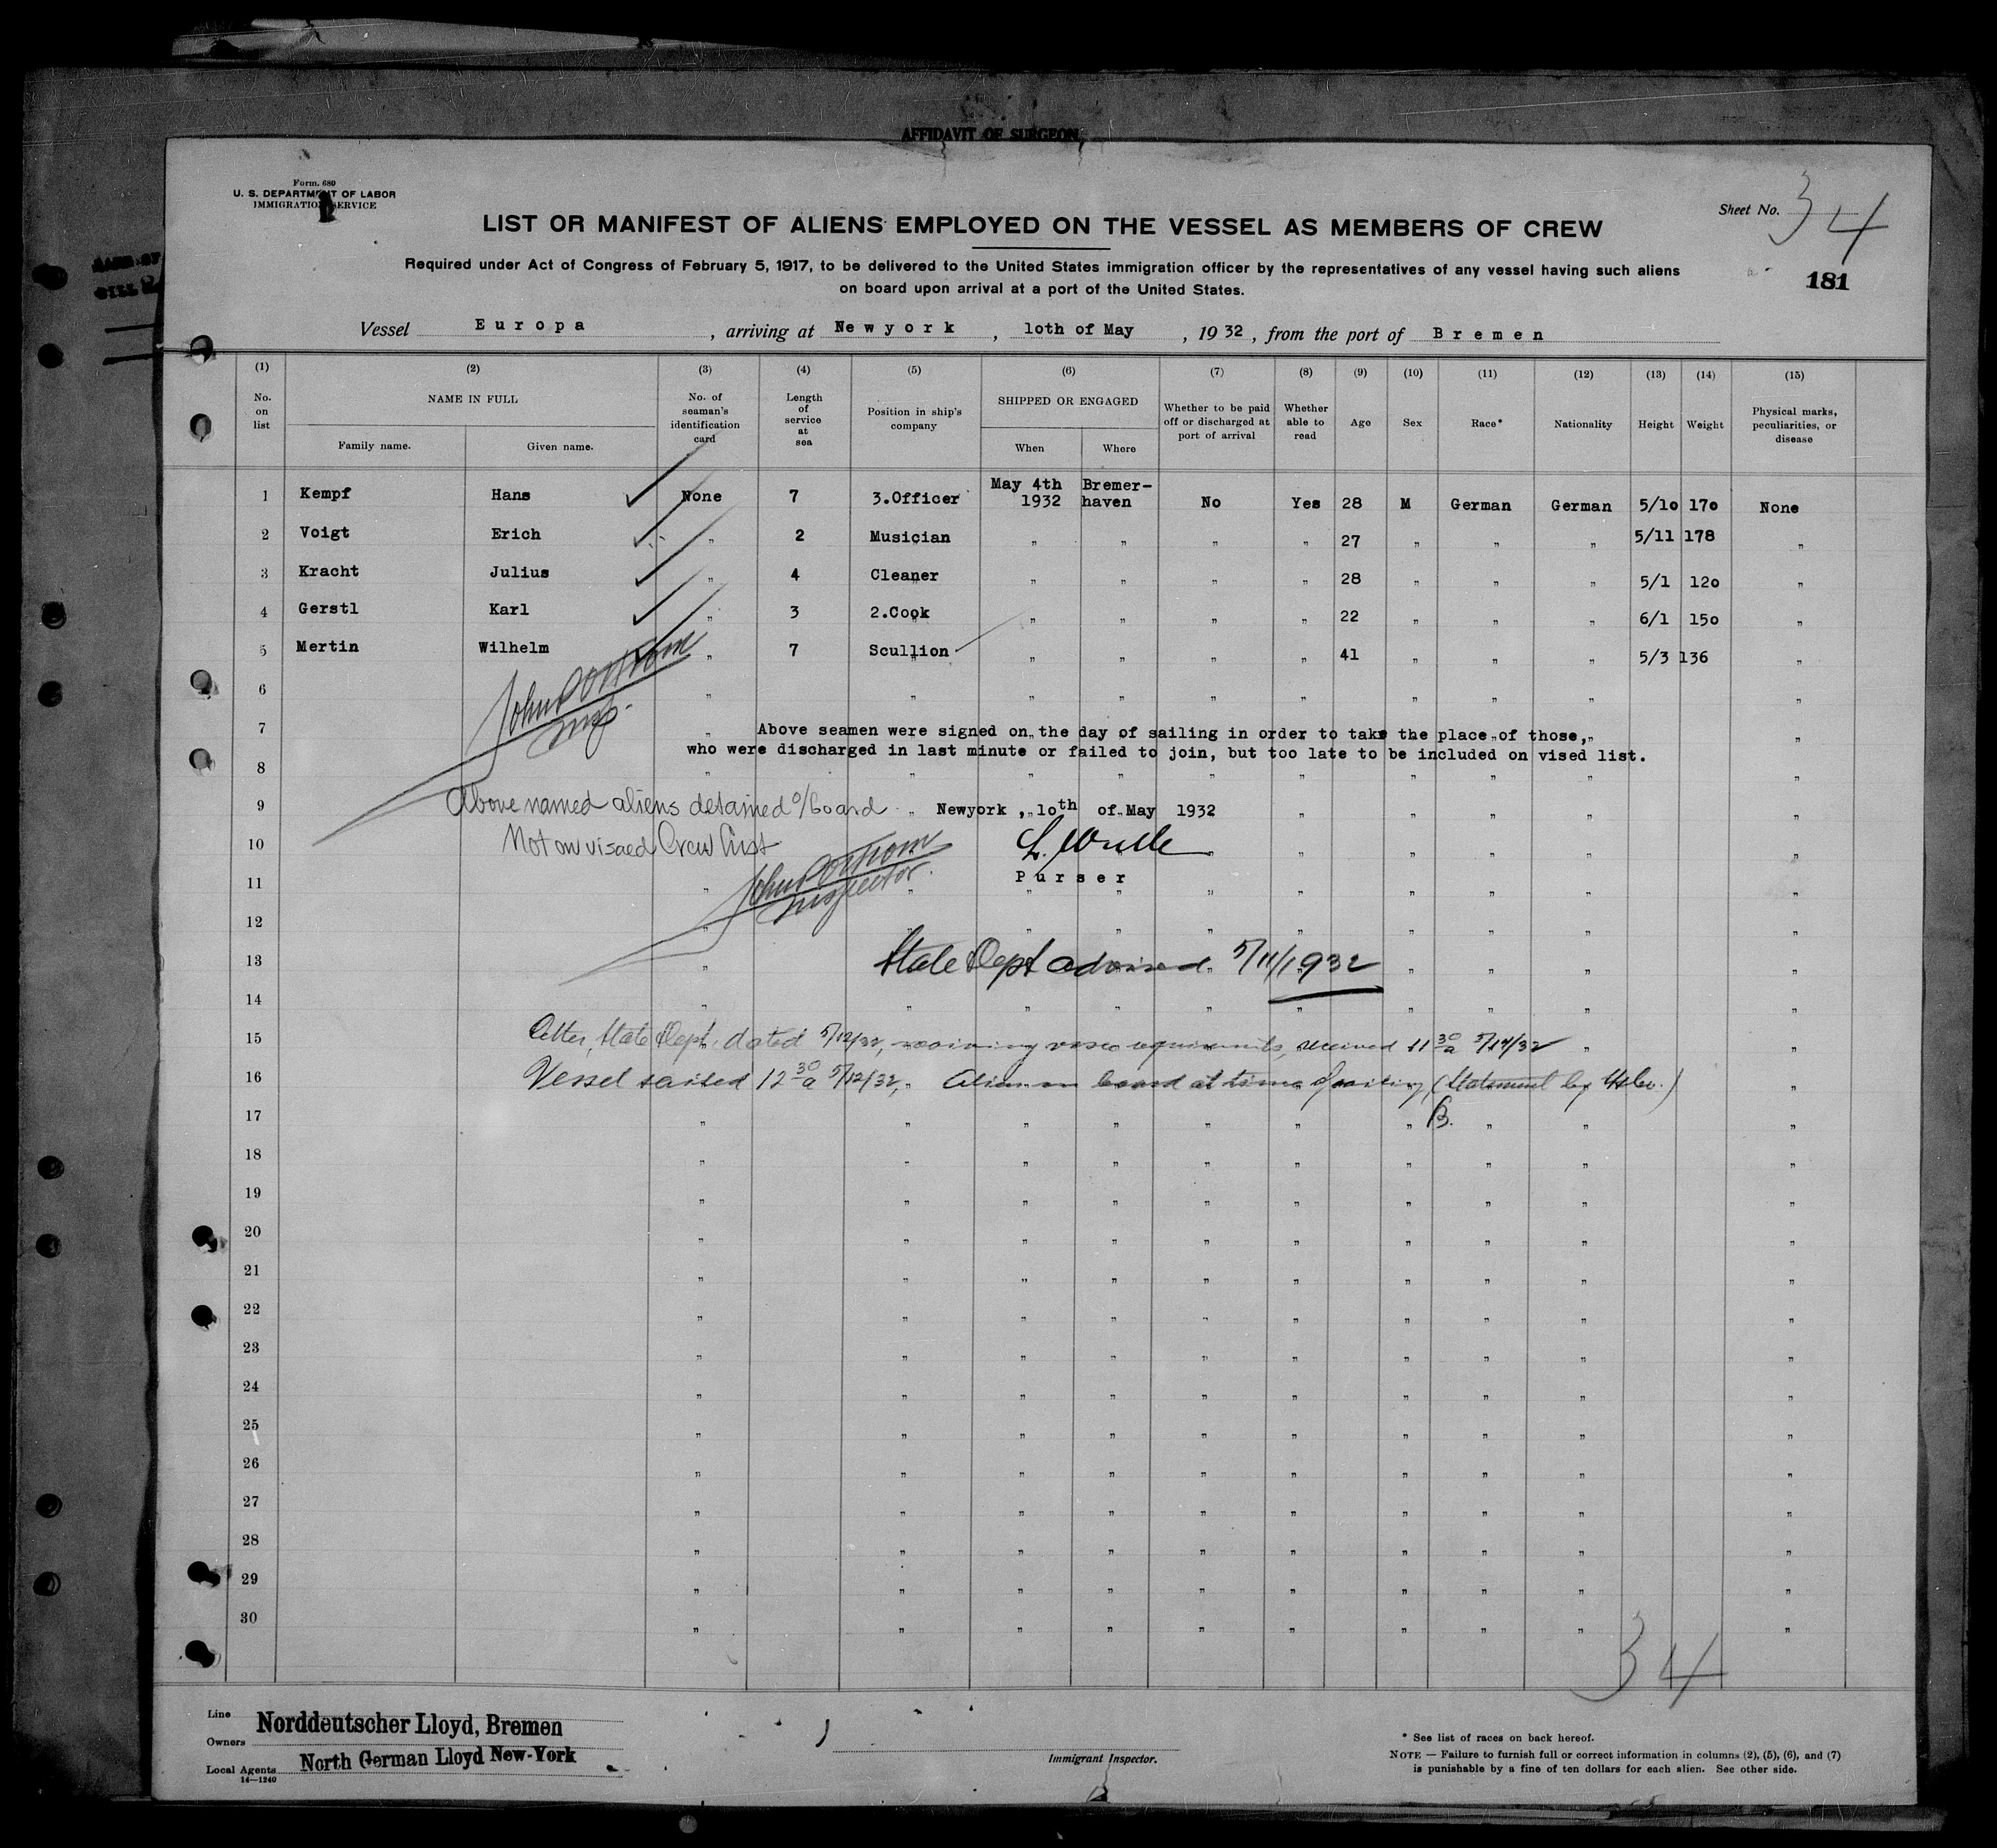 AFFIDAVIT OF SURGEON
Form. 680
U. S. DEPARTMENT OF LABOR
IMMIGRATION SERVICE
Sheet No. 34
LIST OR MANIFEST OF ALIENS EMPLOYED ON THE VESSEL AS MEMBERS OF CREW
Required under Act of Congress of February 5, 1917, to be delivered to the United States immigration officer by the representatives of any vessel having such aliens
on board upon arrival at a port of the United States.
181
Vessel Europa , arriving at Newyork , 1oth of May , 19 32 , from the port of Bremen
(1) (2) (3) (4) (5) (6) (7) (8) (9) (10) (11) (12) (13) (14) (15)
No. on list NAME IN FULL Family name. Given name. No. of seaman's identification card Length of service at sea Position in ship's company SHIPPED OR ENGAGED When Where Whether to be paid off or discharged at port of arrival Whether able to read Age Sex Race* Nationality Height Weight Physical marks, peculiarities, or disease
1 Kempf Hans None 7 3.Officer May 4th 1932 Bremer-haven No Yes 28 M German German 5/1o 17o None
2 Voigt Erich " 2 Musician " " " " 27 " " " 5/11 178 "
3 Kracht Julius " 4 Cleaner " " " " 28 " " " 5/1 12o "
4 Gerstl Karl " 3 2.Cook " " " " 22 " " " 6/1 15o "
5 Mertin Wilhelm " 7 Scullion " " " " 41 " " " 5/3 136 "
6
7 Above seamen were signed on the day of sailing in order to take the place of those,
who were discharged in last minute or failed to join, but too late to be included on vised list.
8
9 Above named aliens detained o/board Newyork , 1oth of May 1932
10 Not on visaed Crew List
11 Inspector. Purser
12
13 State Dept advised 5/11/1932
14
15 Letter, State Dept. dated 5/12/32, waiving visa requirements, received 11 30 a 5/14/32
16 Vessel sailed 12 30 a 5/12/32, Aliens on board at time of sailing (Statement by
17 B.
18
19
20
21
22
23
24
25
26
27
28
29
30
34
Line Norddeutscher Lloyd, Bremen
Owners
Local Agents North German Lloyd New-York
14—1240
Immigrant Inspector.
* See list of races on back hereof.
NOTE — Failure to furnish full or correct information in columns (2), (5), (6), and (7)
is punishable by a fine of ten dollars for each alien. See other side.